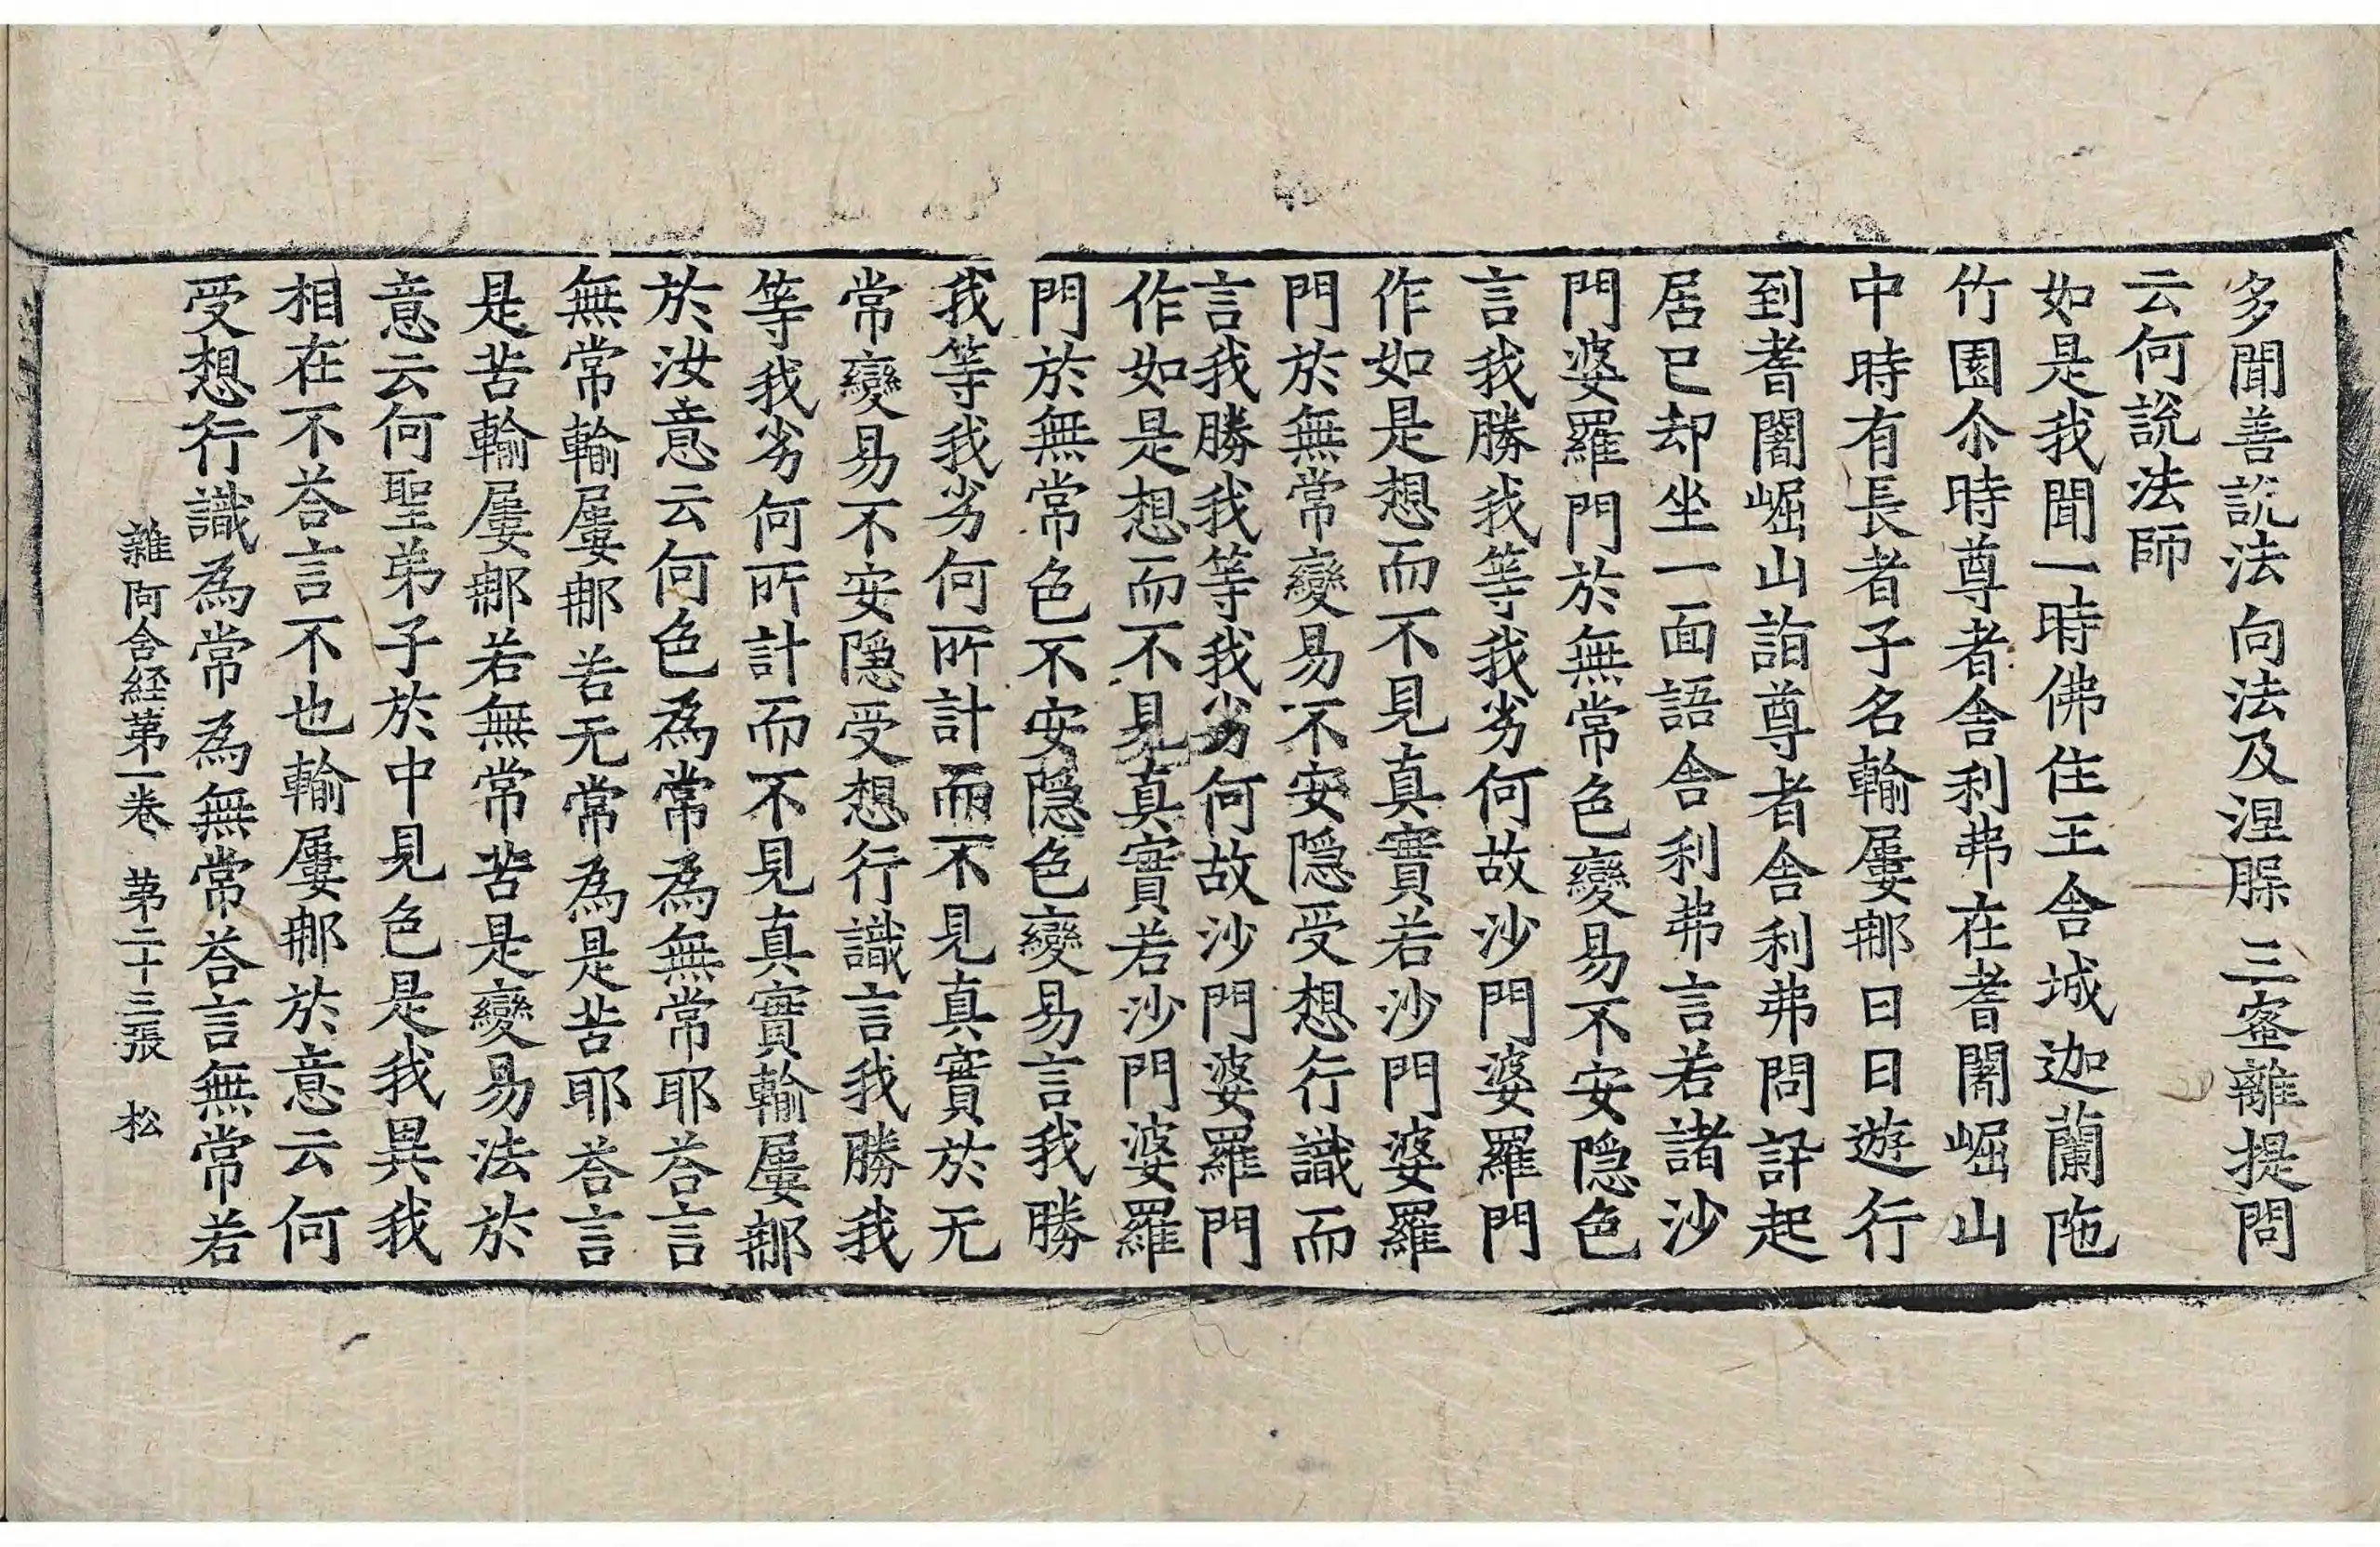 多聞善說法向法及涅脲三蜜離提問
云何說法師
如是我聞一時佛住王舍城迦蘭陁
竹園尒時尊者舍利弗在耆闍崛山
中時有長者子名輸屢㖠日日遊行
到耆闍崛山詣尊者舍利弗問訊起
居已却坐一面語舍利弗言若諸沙
門婆羅門於無常色變易不安隱色
言我勝我等我劣何故沙門婆羅門
作如是想而不見真實若沙門婆羅
門於無常變易不安隱受想行識而
言我勝我等我劣何故沙門婆羅門
作如是想而不見真實若沙門婆羅
門於無常色不安隱色變易言我勝
我等我劣何所計而不見真實於无
常變易不安隱受想行識言我勝我
等我劣何所計而不見真實輸屢㖠
於汝意云何色為常為無常耶荅言
無常輸屢㖠若无常為是苦耶荅言
是苦輸屢㖠若無常苦是變易法於
意云何聖弟子於中見色是我異我
相在不荅言不也輸屢㖠於意云何
受想行識為常為無常荅言無常若
雜阿含経苐一卷 苐二十三張 松